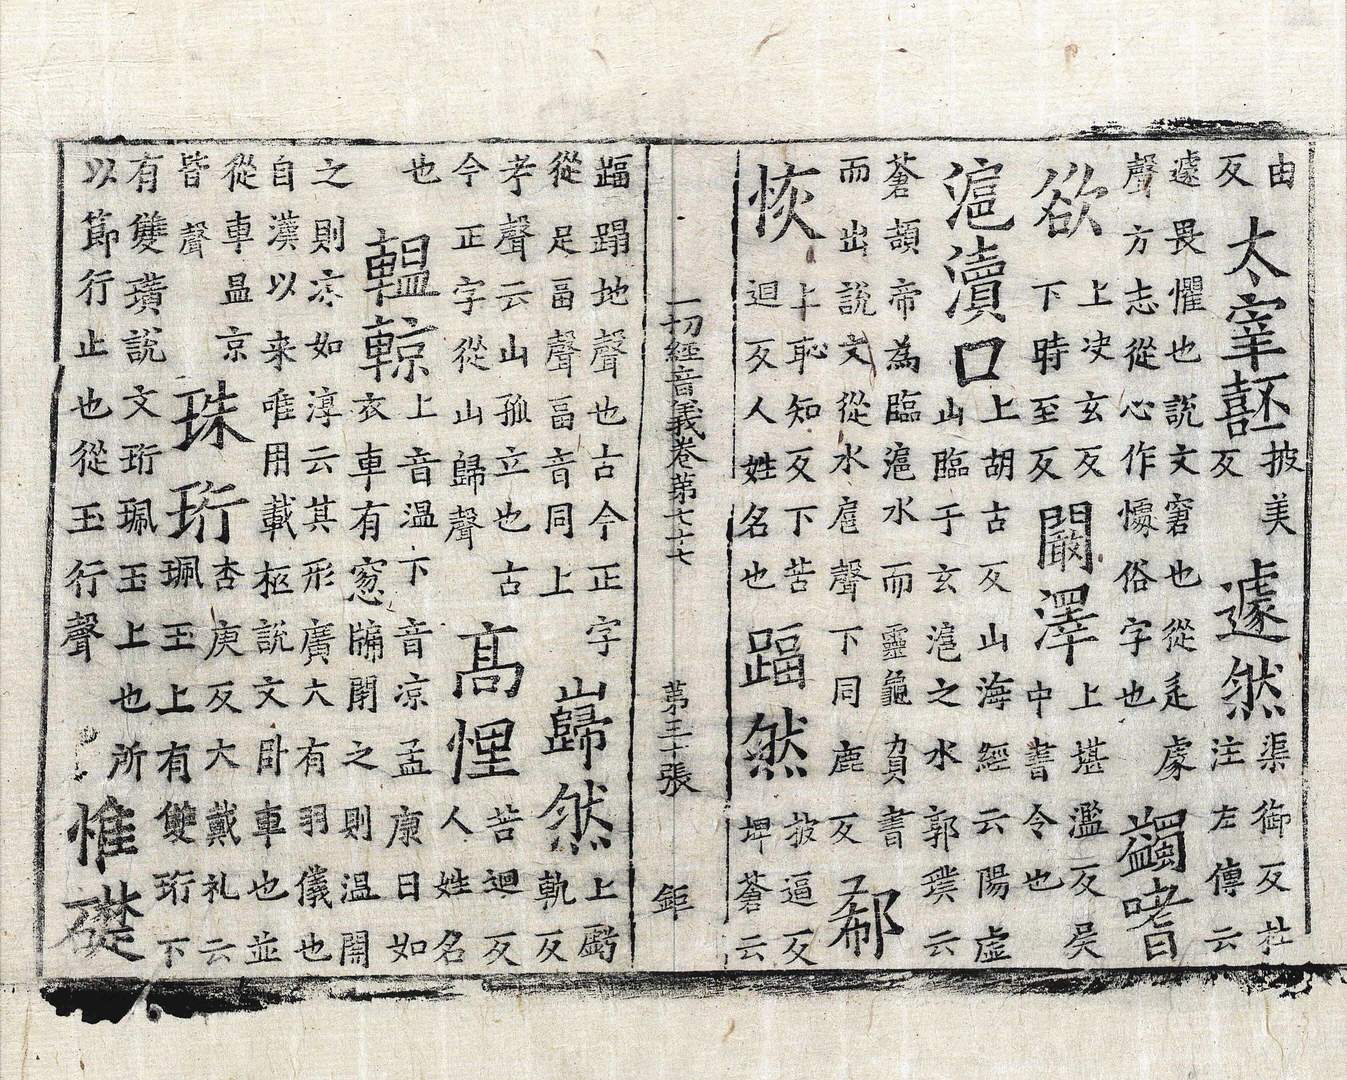 由反太宰嚭披美反遽然渠御反杜注左傳云
遽畏懼也說文窘也從辵豦聲方志從心作懅俗字也蠲嗜
欲上決玄反下時至反闞澤上堪濫反吳中書令也
滬瀆口上胡古反山海經云陽虛山臨于玄滬之水郭璞云
蒼頡帝為臨滬水而靈龜負書而出說文從水扈聲下同鹿反郗
恢上恥知反下苦迴反人姓名也踾然披逼反埤蒼云
一切經音義卷第七十七 第三十張 鉅
踾蹋地聲也古今正字從足畐聲畐音同上巋然上虧軌反
考聲云山孤立也古今正字從山歸聲高悝苦迴反人姓名
也轀輬上音温下音凉孟康曰如衣車有窓牖閉之則温開
之則凉如淳云其形廣大有羽儀也自漢以来唯用載柩說文卧車也並
從車昷京皆聲珠珩杏庚反大戴礼云珮玉上有雙珩下
有雙璜說文珩珮玉上也所以節行止也從玉行聲惟礎